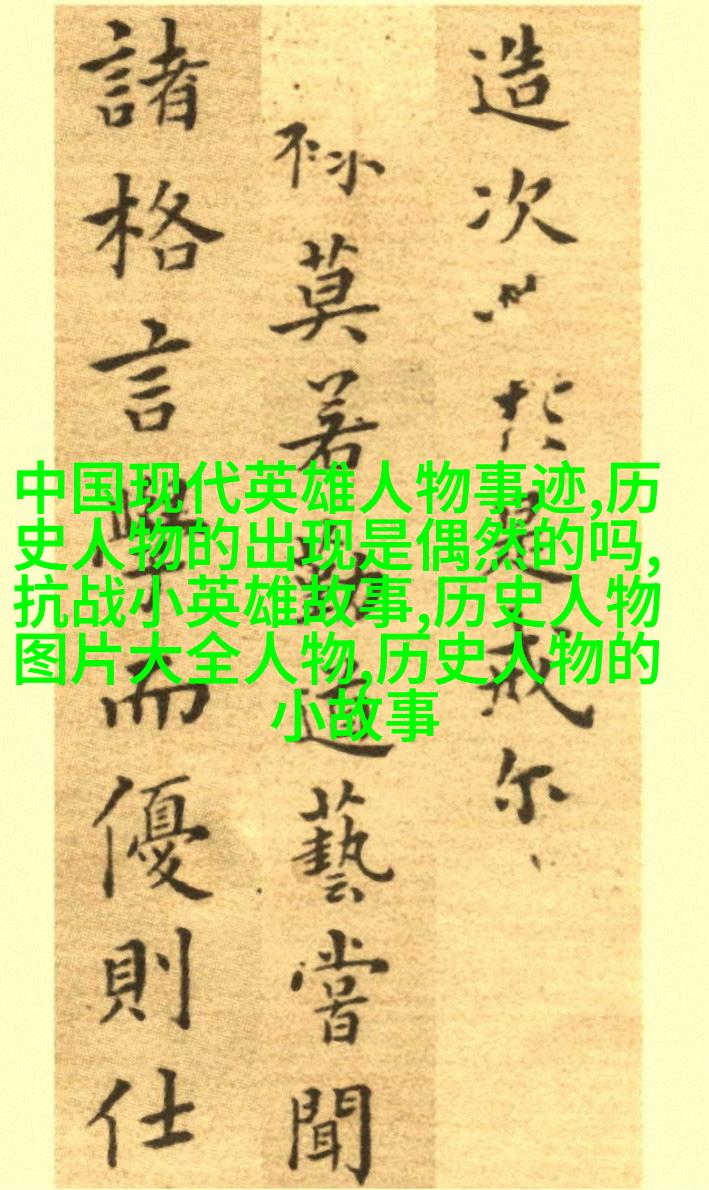 造次於是戒尔
莫若遊藝嘗聞
諸格言學而優則仕
中国现代英雄人物事迹,历
史人物的出现是偶然的吗,
抗战小英雄故事,历史人物
图片大全人物,历史人物的
小故事